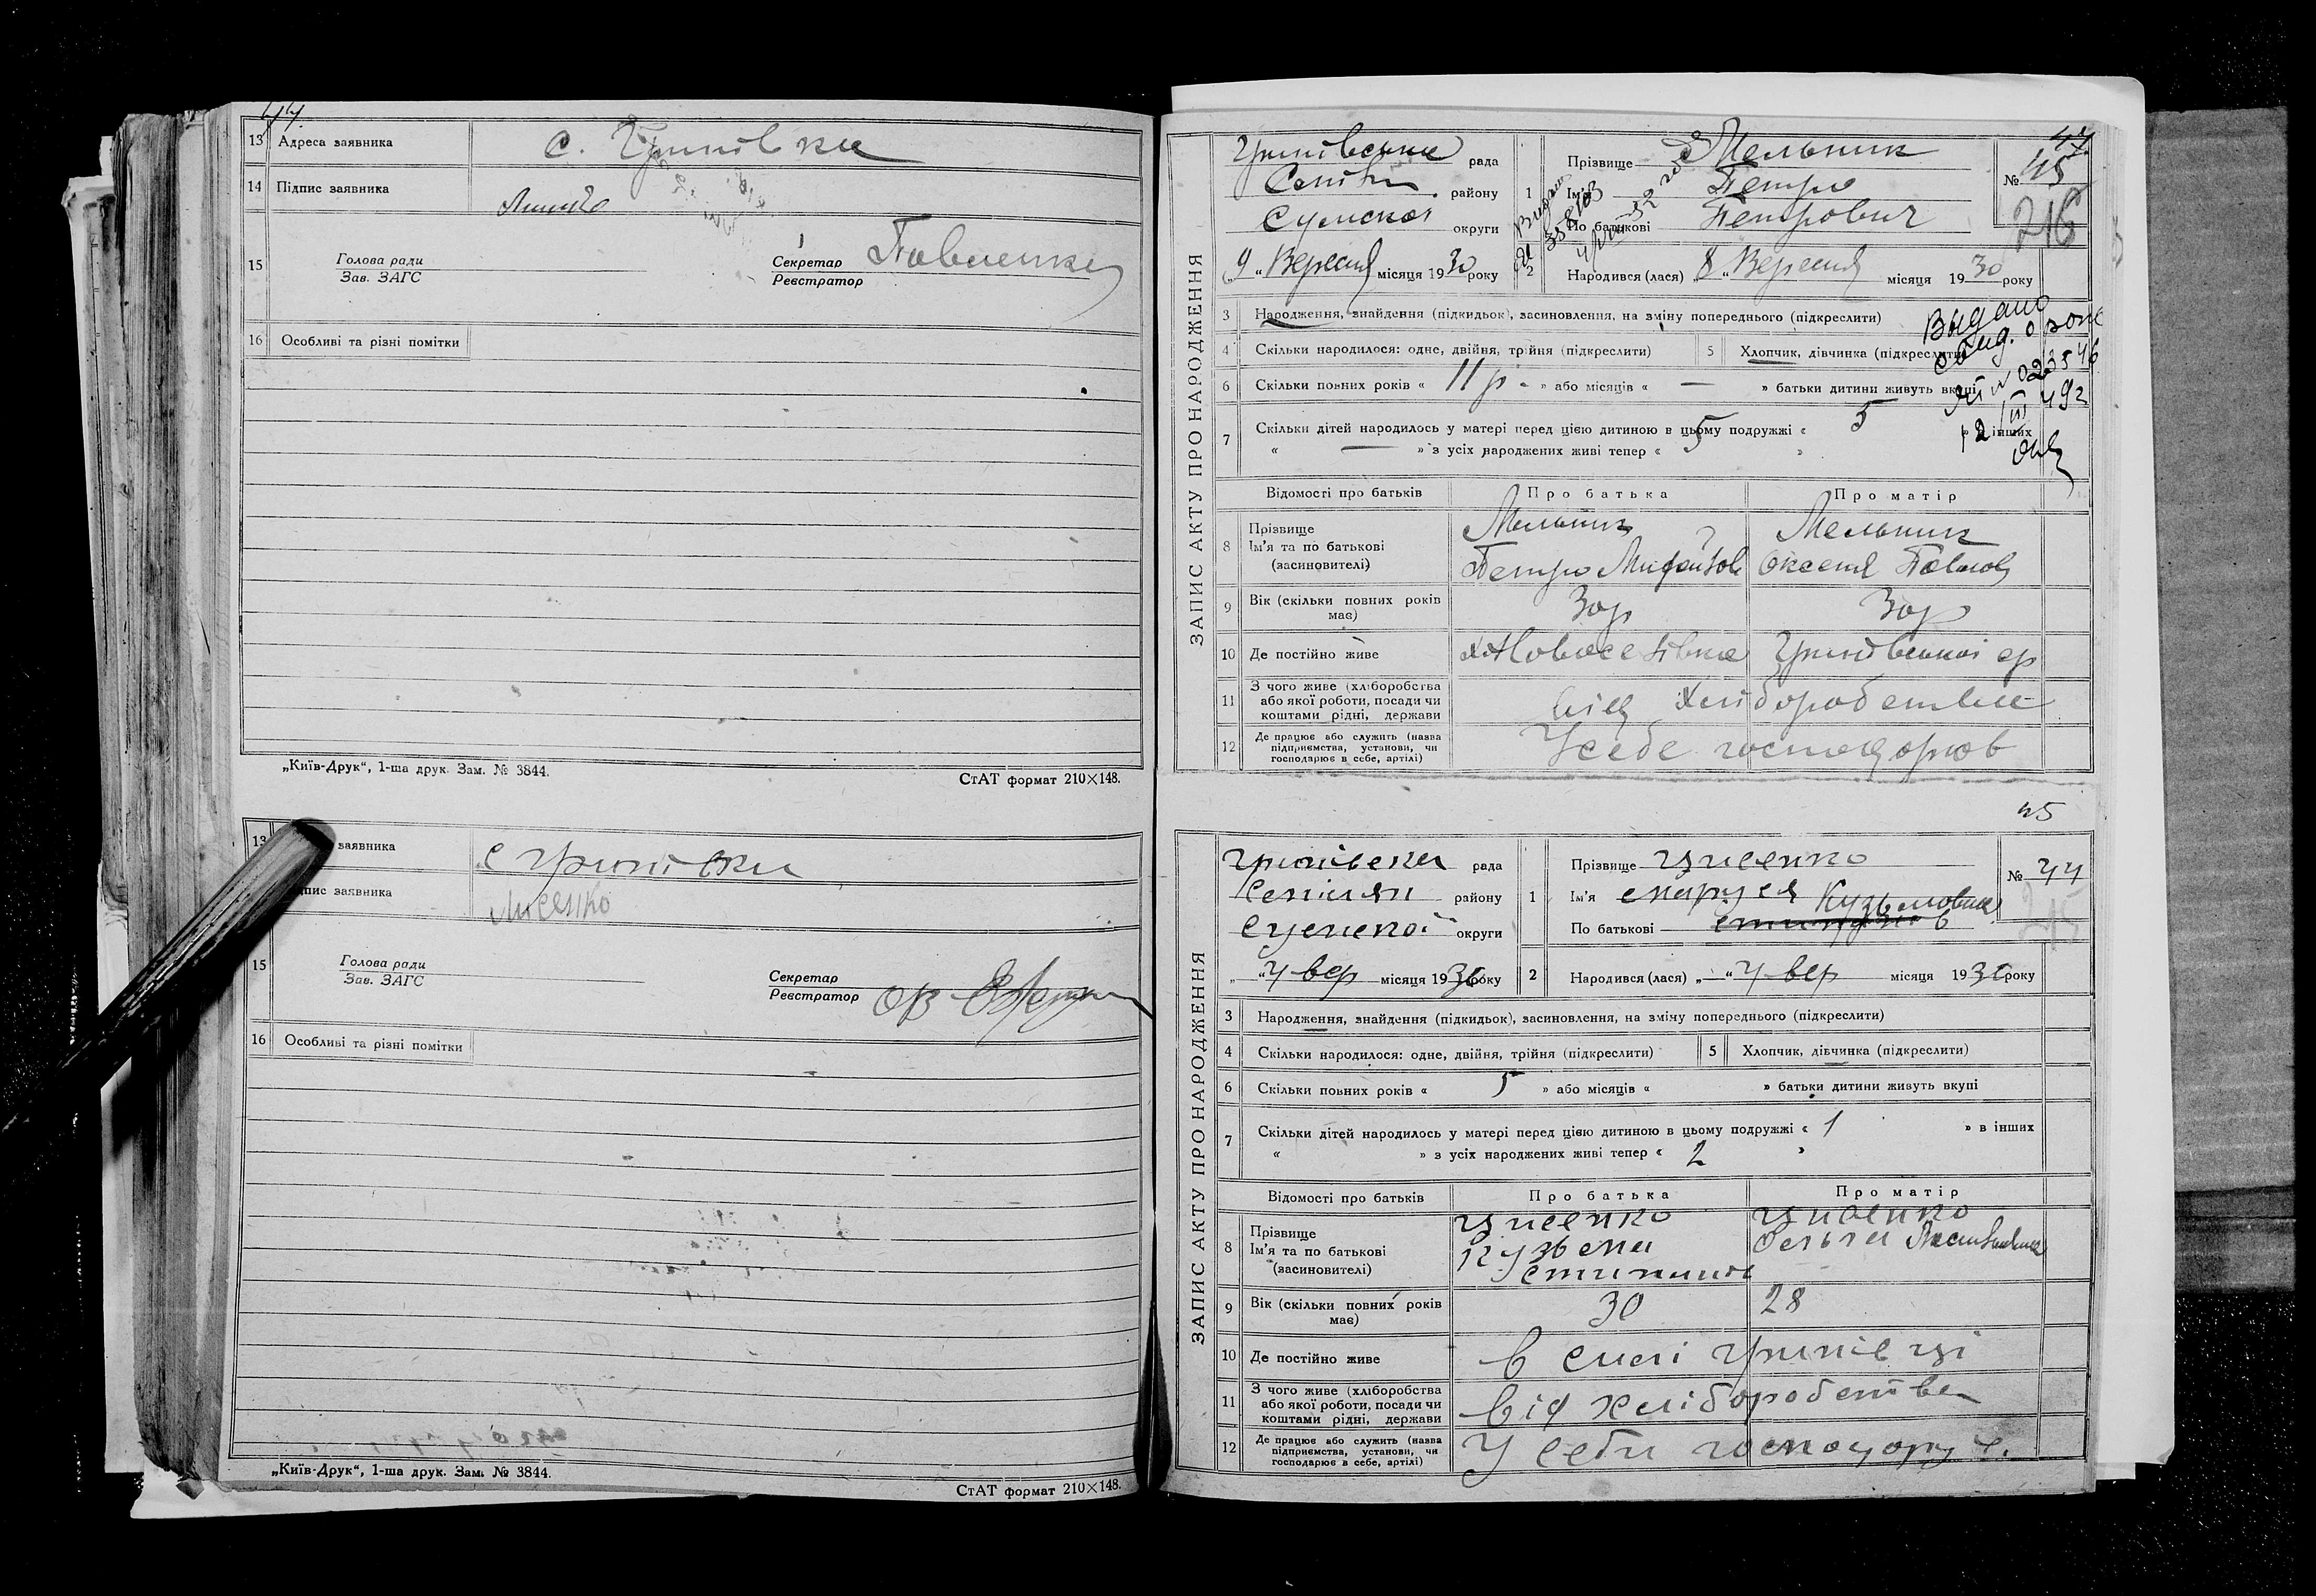 44
13 Адреса заявника с. Грунівка
14 Підпис заявника
15 Голова ради
Зав. ЗАГС
Секретар Павленко
Реєстратор
16 Особливі та різні помітки
„Київ-Друк“, 1-ша друк. Зам. № 3844.
СтАТ формат 210×148.
13 заявника с Грунівки
підпис заявника Лисенко
15 Голова ради
Зав. ЗАГС
Секретар
Реєстратор
16 Особливі та різні помітки
„Київ-Друк“, 1-ша друк. Зам. № 3844.
СтАТ формат 210×148.
47
ЗАПИС АКТУ ПРО НАРОДЖЕННЯ
Грунівська рада
району
Сумської округи
„9“ Вересня місяця 1930 року
1 Прізвище Мельник
Ім'я Петро
По батькові Петрович
№ 45
216
2 Народився (лася) „8“ Вересня місяця 1930 року
3 Народження, знайдення (підкидьок), засиновлення, на зміну попереднього (підкреслити)
4 Скільки народилося: одне, двійня, трійня (підкреслити) 5 Хлопчик, дівчинка (підкреслити)
6 Скільки повних років « 11 р. » або місяців « — » батьки дитини живуть вкупі
7 Скільки дітей народилось у матері перед цією дитиною в цьому подружжі « 5 » в інших
« — » з усіх народжених живі тепер « 5 »
Відомості про батьків Про батька Про матір
8 Прізвище Мельник Мельник
Ім'я та по батькові
(засиновителі) Петро Оксена Павлов
9 Вік (скільки повних років має) 30 р 30 р
10 Де постійно живе Грунівської ср
11 З чого живе (хліборобства або якої роботи, посади чи коштами рідні, держави від хліборобства
12 Де працює або служить (назва підприємства, установи, чи господарює в себе, артілі) У себе господарюв
45
ЗАПИС АКТУ ПРО НАРОДЖЕННЯ
Грунівська рада
району
Сумської округи
„4 вер місяця 1930 року
1 Прізвище Лисенко
Ім'я Маруся
По батькові Кузьмовна
№ 44
2 Народився (лася) „4 вер місяця 1930 року
3 Народження, знайдення (підкидьок), засиновлення, на зміну попереднього (підкреслити)
4 Скільки народилося: одне, двійня, трійня (підкреслити) 5 Хлопчик, дівчинка (підкреслити)
6 Скільки повних років « 5 » або місяців « » батьки дитини живуть вкупі
7 Скільки дітей народилось у матері перед цією дитиною в цьому подружжі « 1 » в інших
« » з усіх народжених живі тепер « 2 »
Відомості про батьків Про батька Про матір
8 Прізвище Лисенко Лисенко
Ім'я та по батькові Кузьма
(засиновителі)
9 Вік (скільки повних років має) 30 28
10 Де постійно живе в селі Грунівці
11 З чого живе (хліборобства або якої роботи, посади чи коштами рідні, держави від хліборобства
12 Де працює або служить (назва підприємства, установи, чи господарює в себе, артілі) У себи